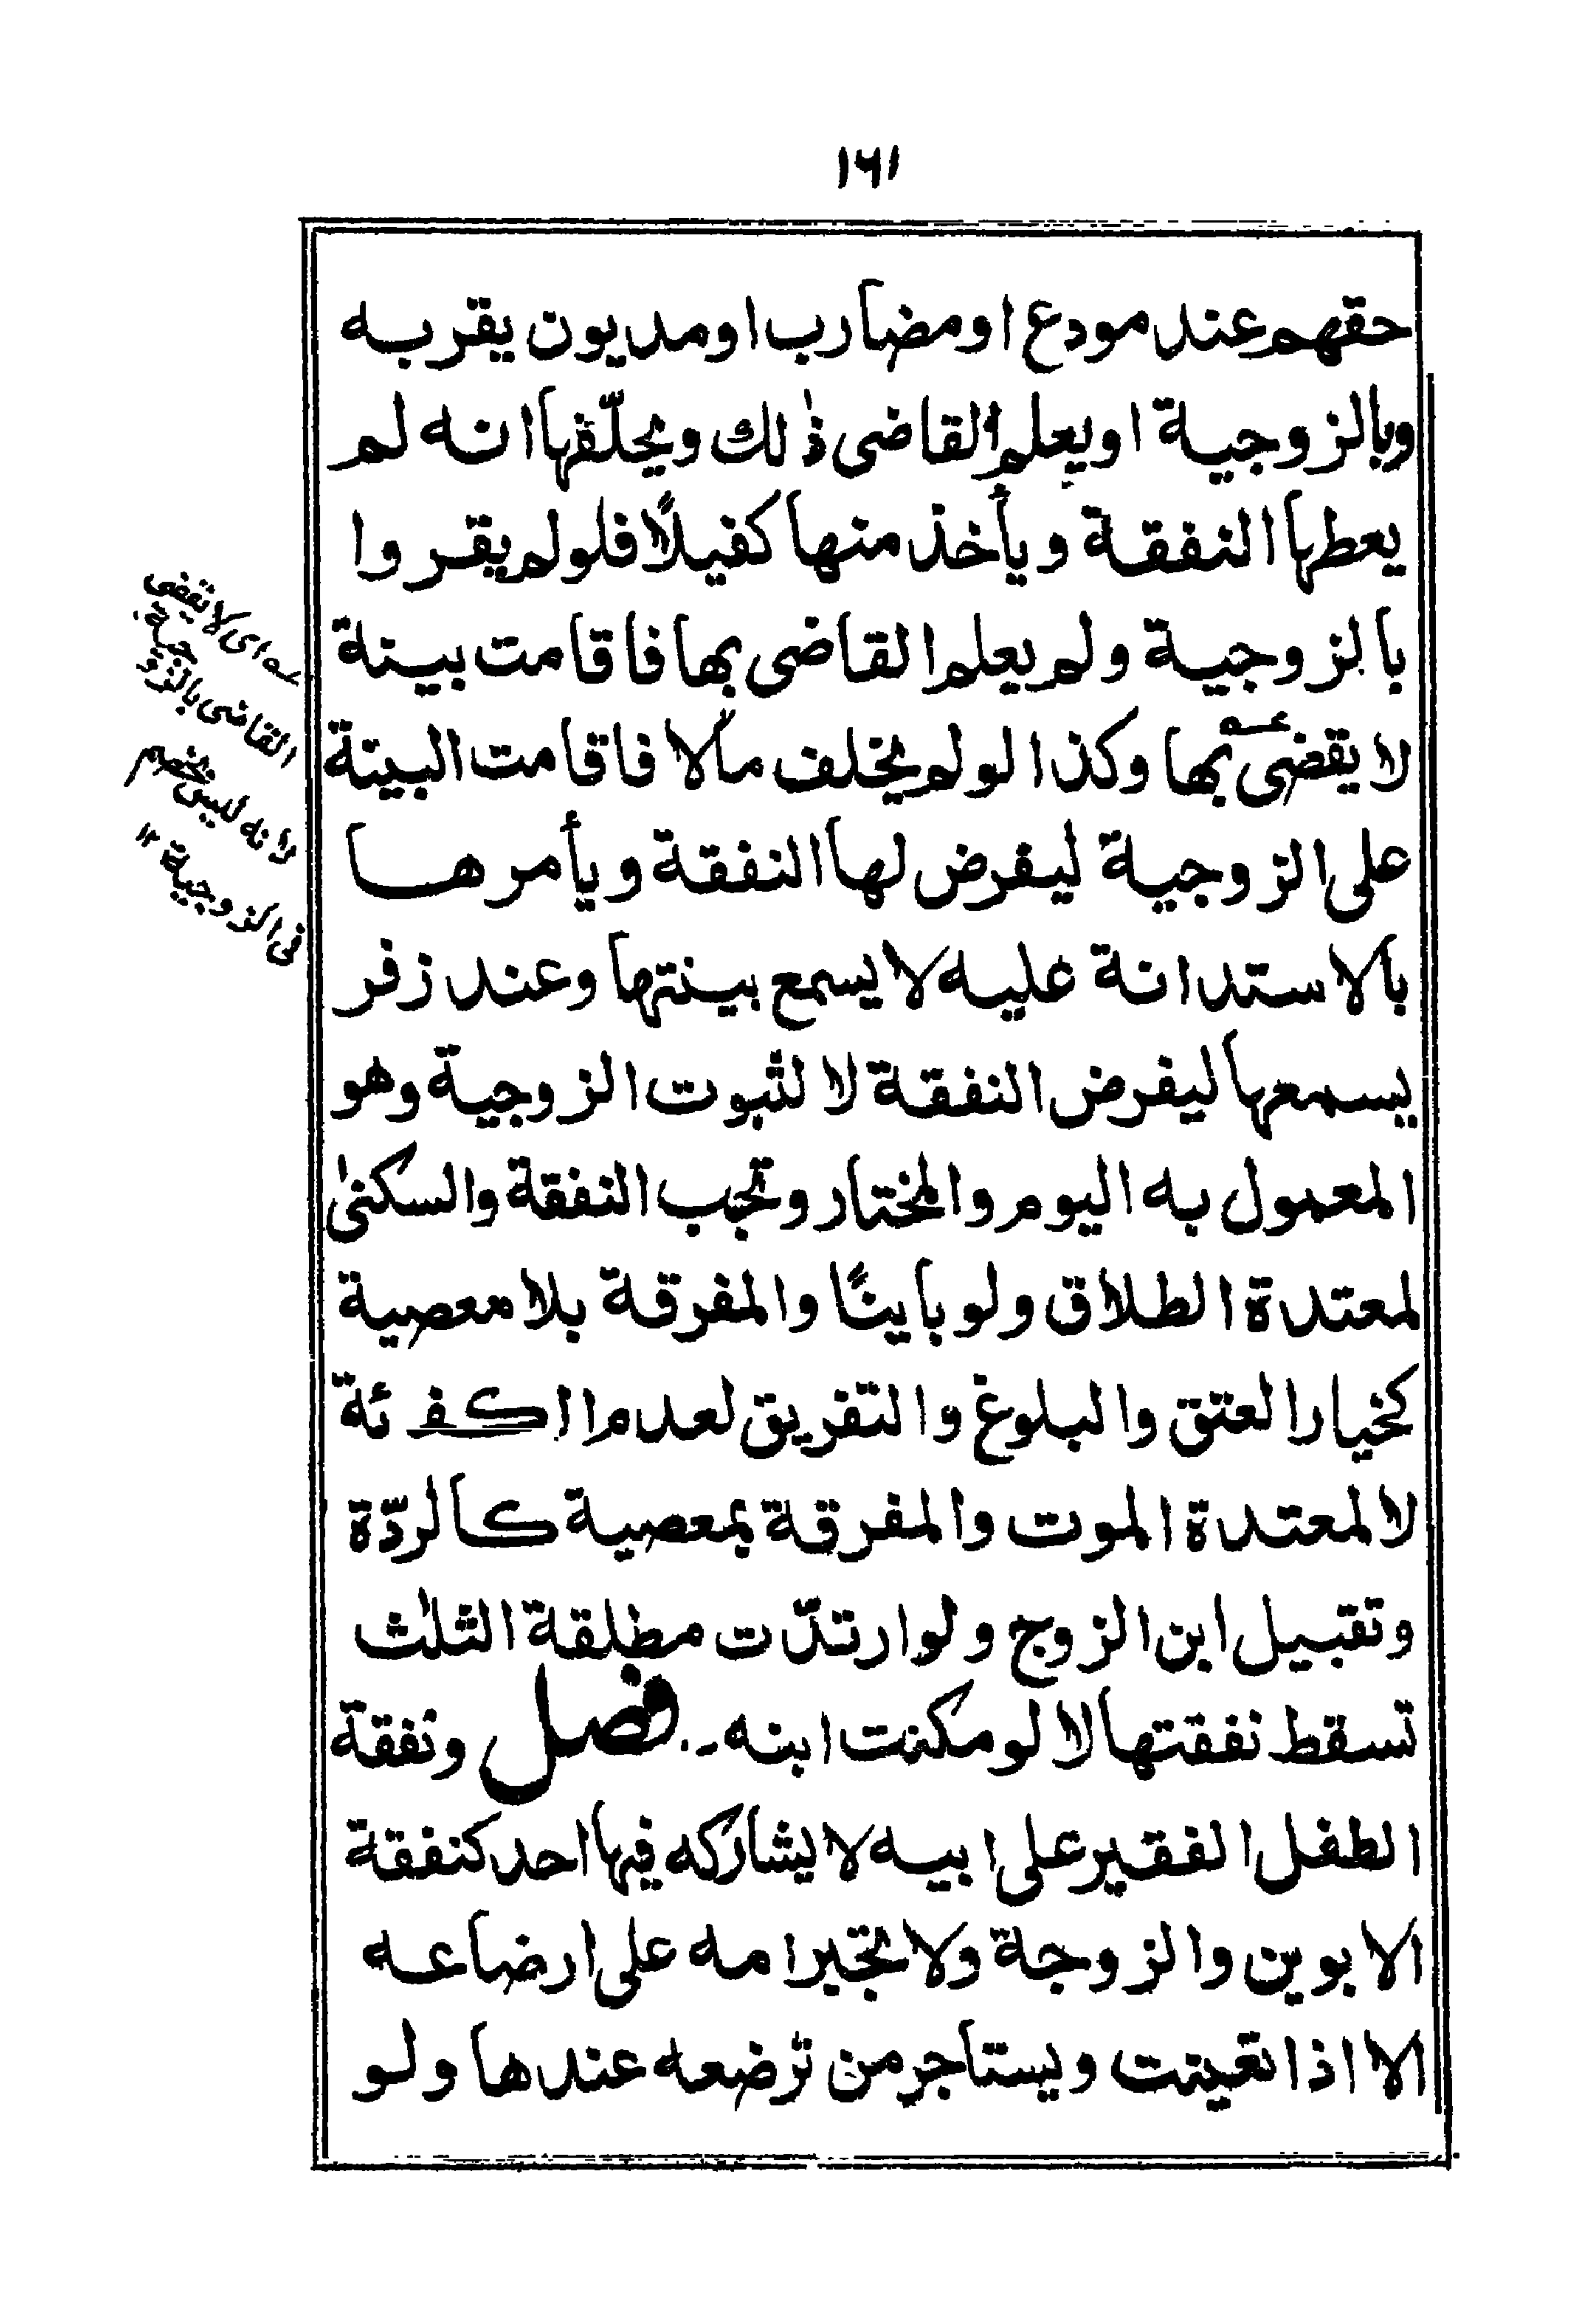 ١٦١
حقهم عند مودع او مضارب او مديون يقر به
وبالزوجية او يعلم القاضى ذٰلك ويحلّفها انه لم
يعطها النفقة ويأخذ منها كفيلًا فلو لم يقروا
بالزوجية ولم يعلم القاضى بها فاقامت بينة
لا يقضى بها وكذا لو لم يخلف مالا فاقامت البينة
على الزوجية ليفرض لها النفقة ويأمرها
بالاستدانة عليه لا يسمع بينتها وعند زفر
يسمعها ليفرض النفقة لا لثبوت الزوجية وهو
المعمول به اليوم والمختار وتجب النفقة والسكنىٰ
لمعتدة الطلاق ولو باينًا والمفرقة بلا معصية
كخيار العتق والبلوغ والتفريق لعدم الكفئة
لا لمعتدة الموت والمفرقة بمعصية كالردّة
وتقبيل ابن الزوج ولو ارتدّت مطلقة الثلٰث
تسقط نفقتها لا لو مكنت ابنه۔. فصل ونفقة
الطفل الفقير على ابيه لا يشاركه فيها احد كنفقة
الابوين والزوجة ولا تجبر امه على ارضاعه
الا اذا تعينت ويستاجر من ترضعه عندها ولو
عه اى لا يقضى
القاضى بالزوجية
لانه ليس بخصم
فى الزوجية ١٢